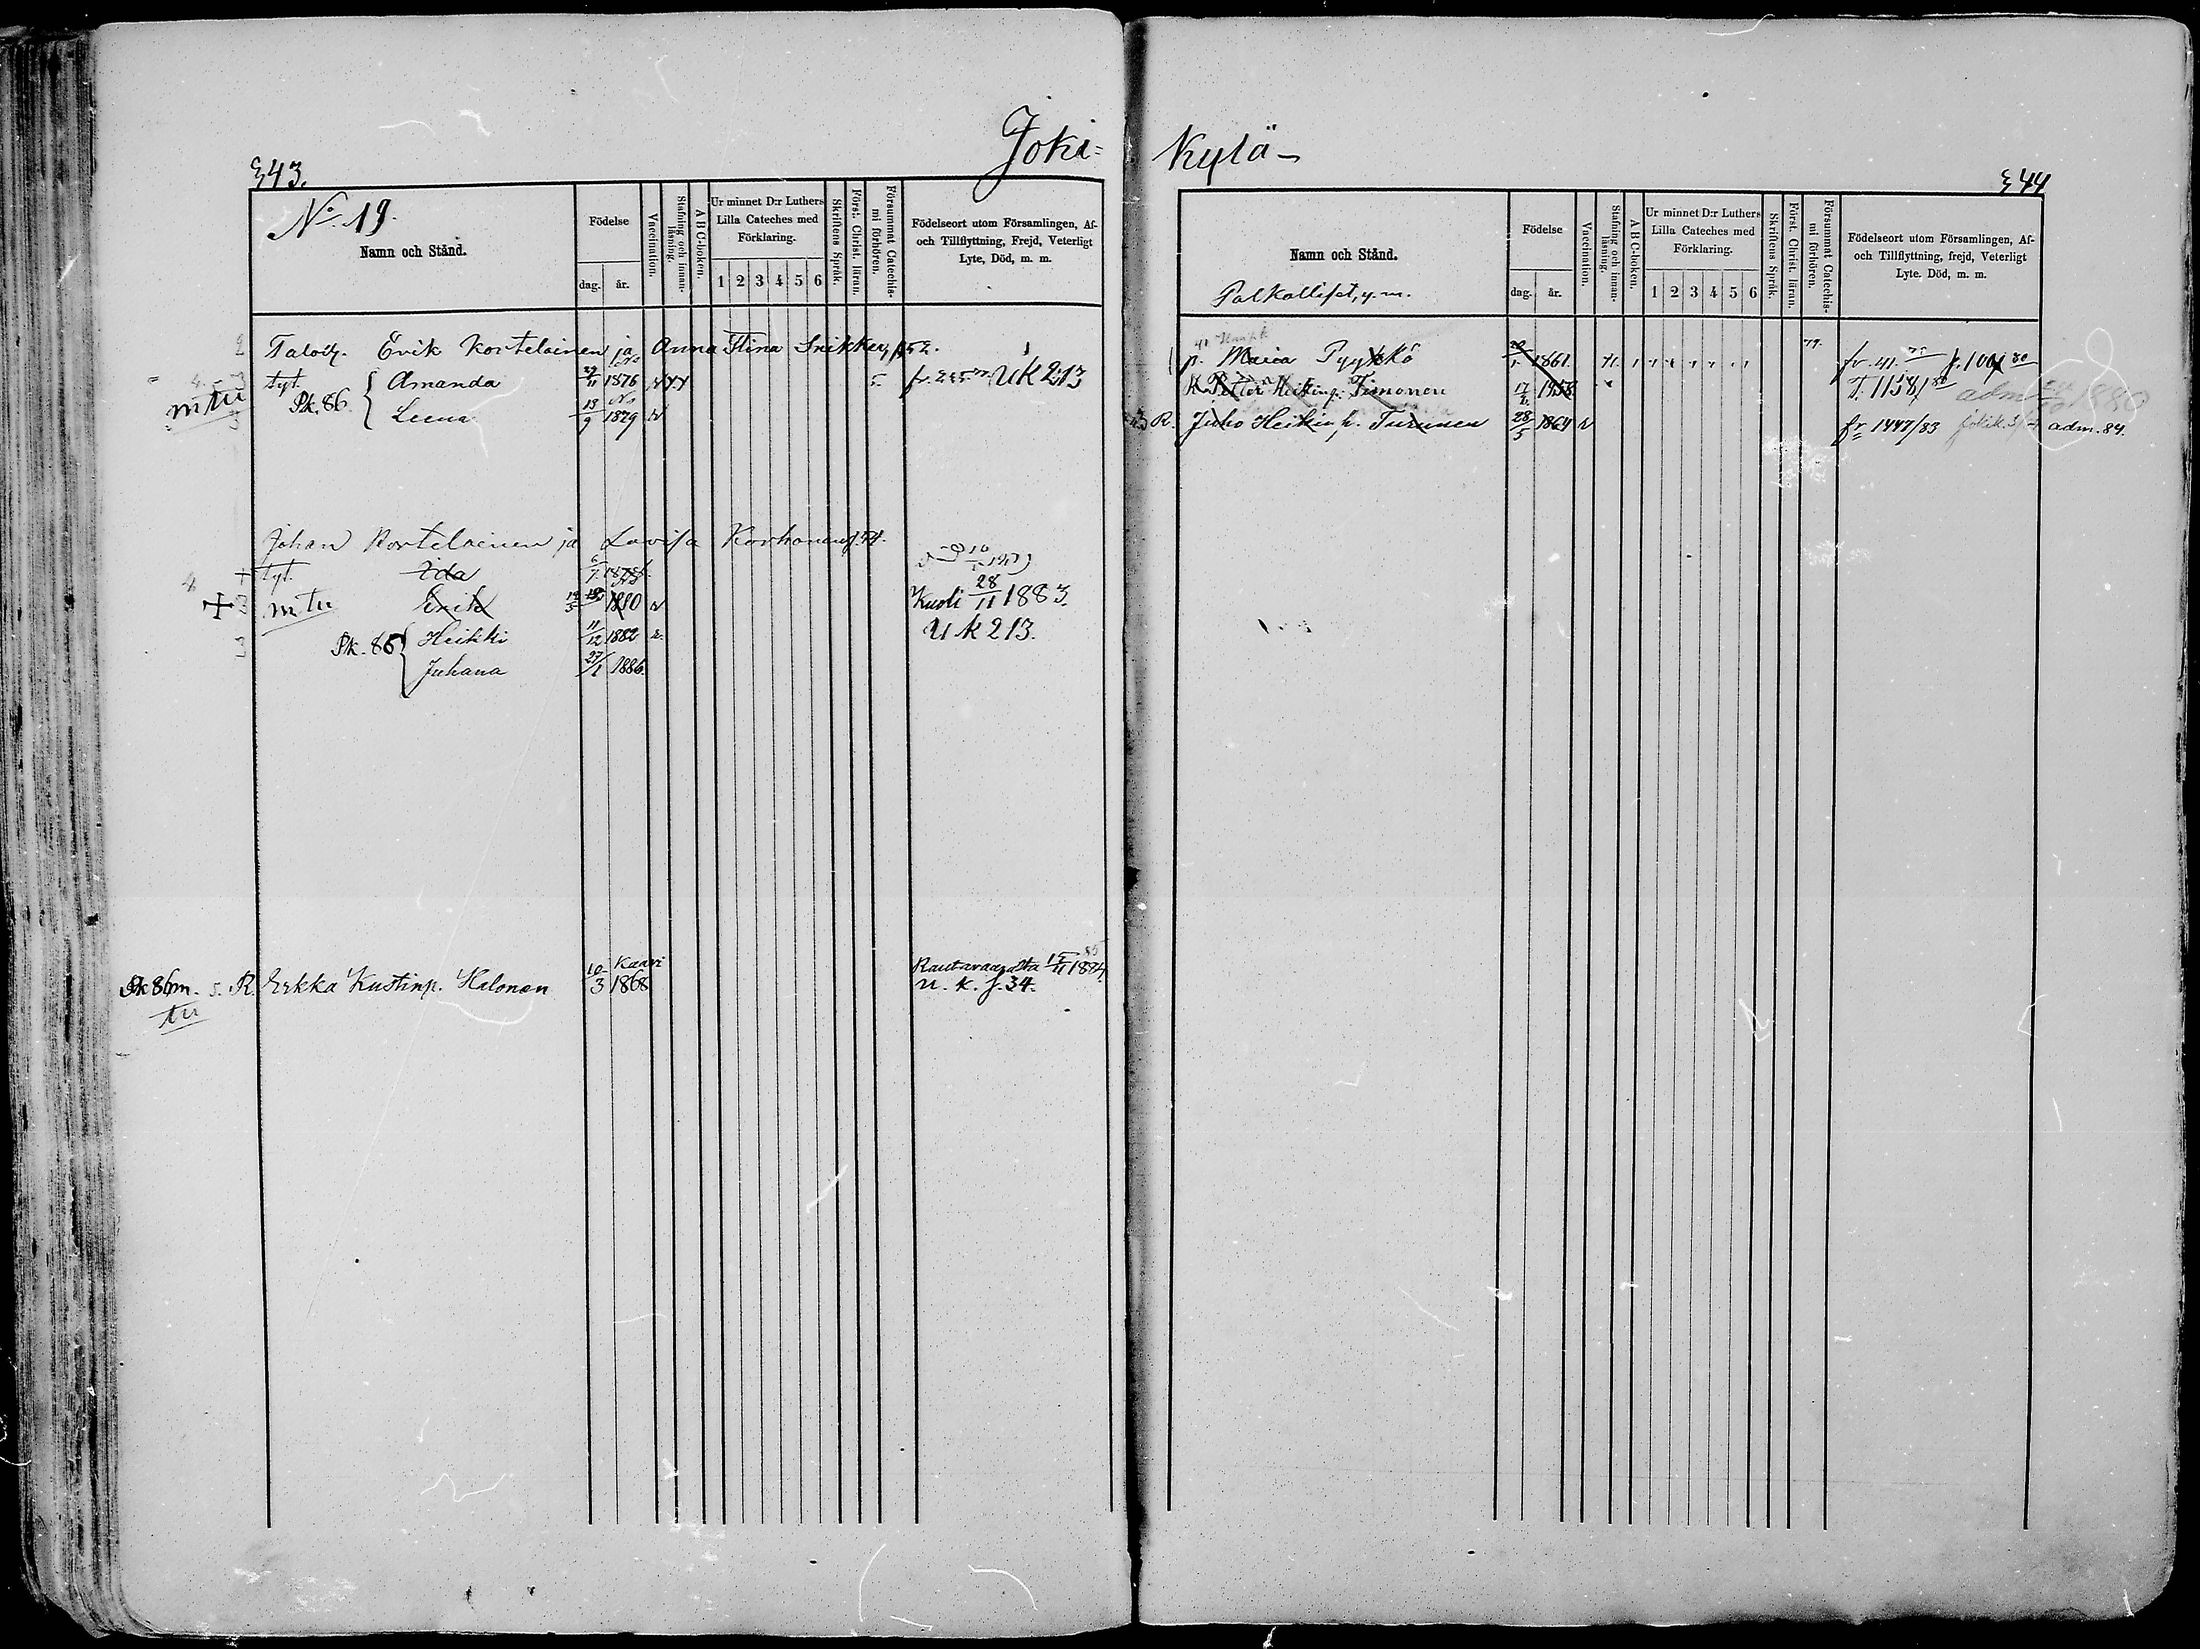 Joki=
Kylä-
343.
No. 19.
Namn och Stånd.
Födelse
dag.
år.
Vaccination.
Stafning och innan-
läsning.
A B C-boken.
Ur minnet D:r Luthers
Lilla Cateches med
Förklaring.
1 2 3 4 5 6
Skriftens Språk.
Först. Christ. läran.
Försummat Catechis-
mi förhören.
Födelseort utom Församlingen, Af-
och Tillflyttning, Frejd, Veterligt
Lyte, Död, m. m.
Erik Kortelainen ja Anna Stina
tyt. Amanda 1876 UK 213
mtu Pk. 86
Leena 13/9 1879
Johan Kortelainen ja Lovisa Korhonen
tyt. Ida
mtu Erik 1880 Kuoli 28/11 1883.
Pk. 86 Heikki 11/12 1882 UK 213.
Juhana 1886.
Pk 86 m. 5. R. Erkka Kustinp. Halonen 10/3 1868 Kaavi
tu
u. k. f. 34.
344
Namn och Stånd.
Palkolliset, y. m.
Födelse
dag.
år.
Vaccination.
Stafning och innan-
läsning.
A B C-boken.
Ur minnet D:r Luthers
Lilla Cateches med
Förklaring.
1 2 3 4 5 6
Skriftens Språk.
Först. Christ. läran.
Försummat Catechis-
mi förhören.
Födelseort utom Församlingen, Af-
och Tillflyttning, frejd, Veterligt
Lyte. Död, m. m.
p. Maria Pyykkö 1861. 79. fr. 41.
Heikinp. Timonen 17 1880
R. Juho Heikin p. Turunen 28/5 1864 fr 1447/83 adm. 84.